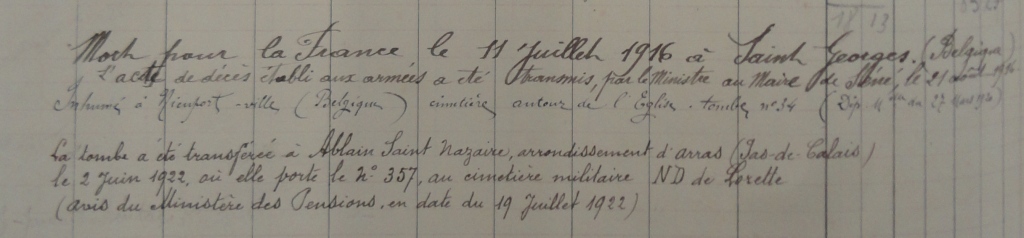 18 13
Mort pour la France le 11 Juillet 1916 à Saint Georges. (Belgique)
L'acte de décès établi aux armées a été transmis, par le Ministre au Maire de Séné, le 21 août 1916
Inhumé à Nieuport-ville (Belgique) cimetière autour de l'Eglise. tombe n° 34 (Dép. du 27 Mars
La tombe a été transférée à Ablain Saint Nazaire, arrondissement d'arras (Pas-de-Calais)
le 2 Juin 1922, où elle porte le N° 357, au cimetière militaire ND de Lorette
(avis du Ministère des Pensions, en date du 19 Juillet 1922)